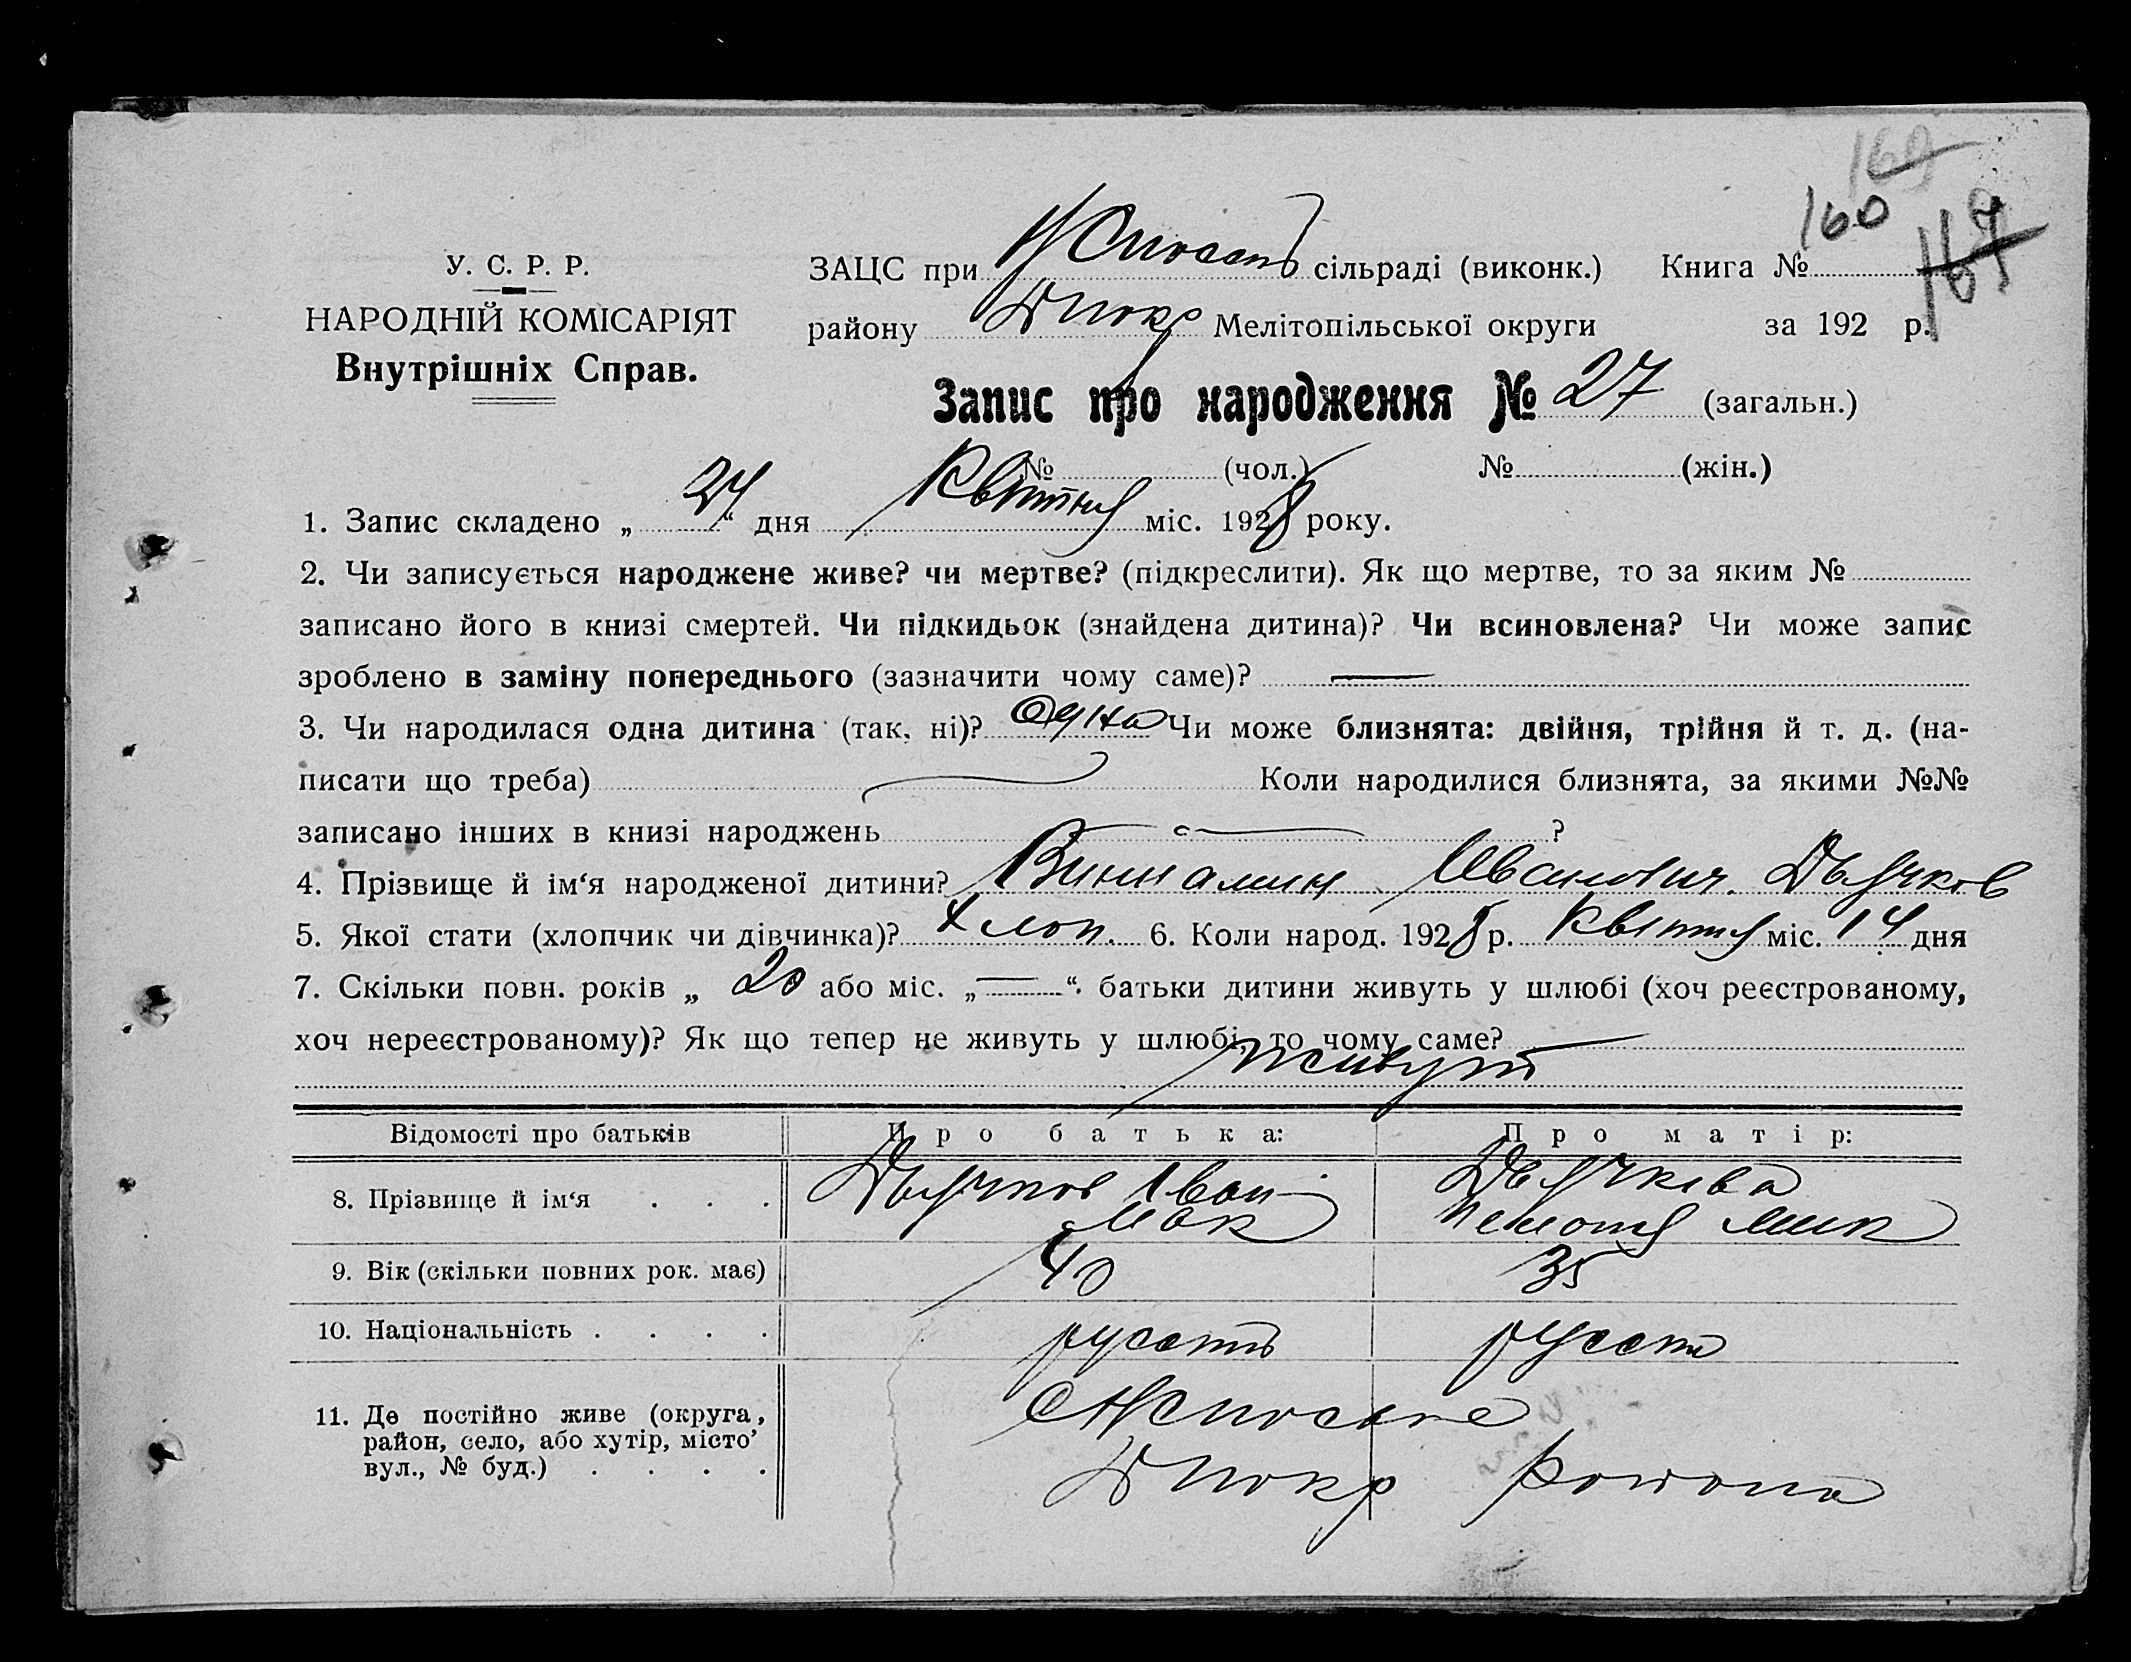 169
160
167
У. С. Р. Р.
НАРОДНІЙ КОМІСАРІЯТ
Внутрішніх Справ.
ЗАЦС при сільраді (виконк.) Книга №
району Мелітопільської округи за 192 р.
Запис про народження № 27 (загальн.)
№ (чол.) № (жін.)
1. Запис складено „ 24 “ дня Квітня міс. 1928 року.
2. Чи записується народжене живе? чи мертве? (підкреслити). Як що мертве, то за яким №
записано його в книзі смертей. Чи підкидьок (знайдена дитина)? Чи всиновлена? Чи може запис
зроблено в заміну попереднього (зазначити чому саме)? —
3. Чи народилася одна дитина (так, ні)? Одна Чи може близнята: двійня, трійня й т. д. (на-
писати що треба) Коли народилися близнята, за якими №№
записано інших в книзі народжень ?
4. Прізвище й ім‘я народженої дитини? Виниамин Іванович Дьячков
5. Якої стати (хлопчик чи дівчинка)? Хлоп. 6. Коли народ. 1928 р. Квітня міс. 14 дня
7. Скільки повн. років „ 20 або міс. „ — “. батьки дитини живуть у шлюбі (хоч реєстрованому,
хоч нереєстрованому)? Як що тепер не живуть у шлюбі, то чому саме?
живут
Відомості про батьків Про батька: Про матір:
8. Прізвище й ім‘я . . . Дьячков Іван Дьячкова
9. Вік (скільки повних рок. має) 40 35
10. Національність . . . .
11. Де постійно живе (округа,
район, село, або хутір, місто’
вул., № буд.) . . . . района